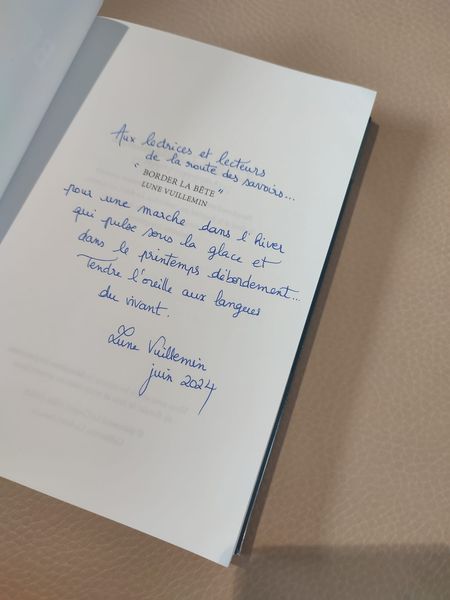 Aux lectrices et lecteurs
de la route des savoirs...
"BORDER LA BÊTE"
LUNE VUILLEMIN
pour une marche dans l'hiver
qui pulse sous la glace et
dans le printemps débordement...
Tendre l'oreille aux langues
du vivant.
Lune Vuillemin
juin 2024